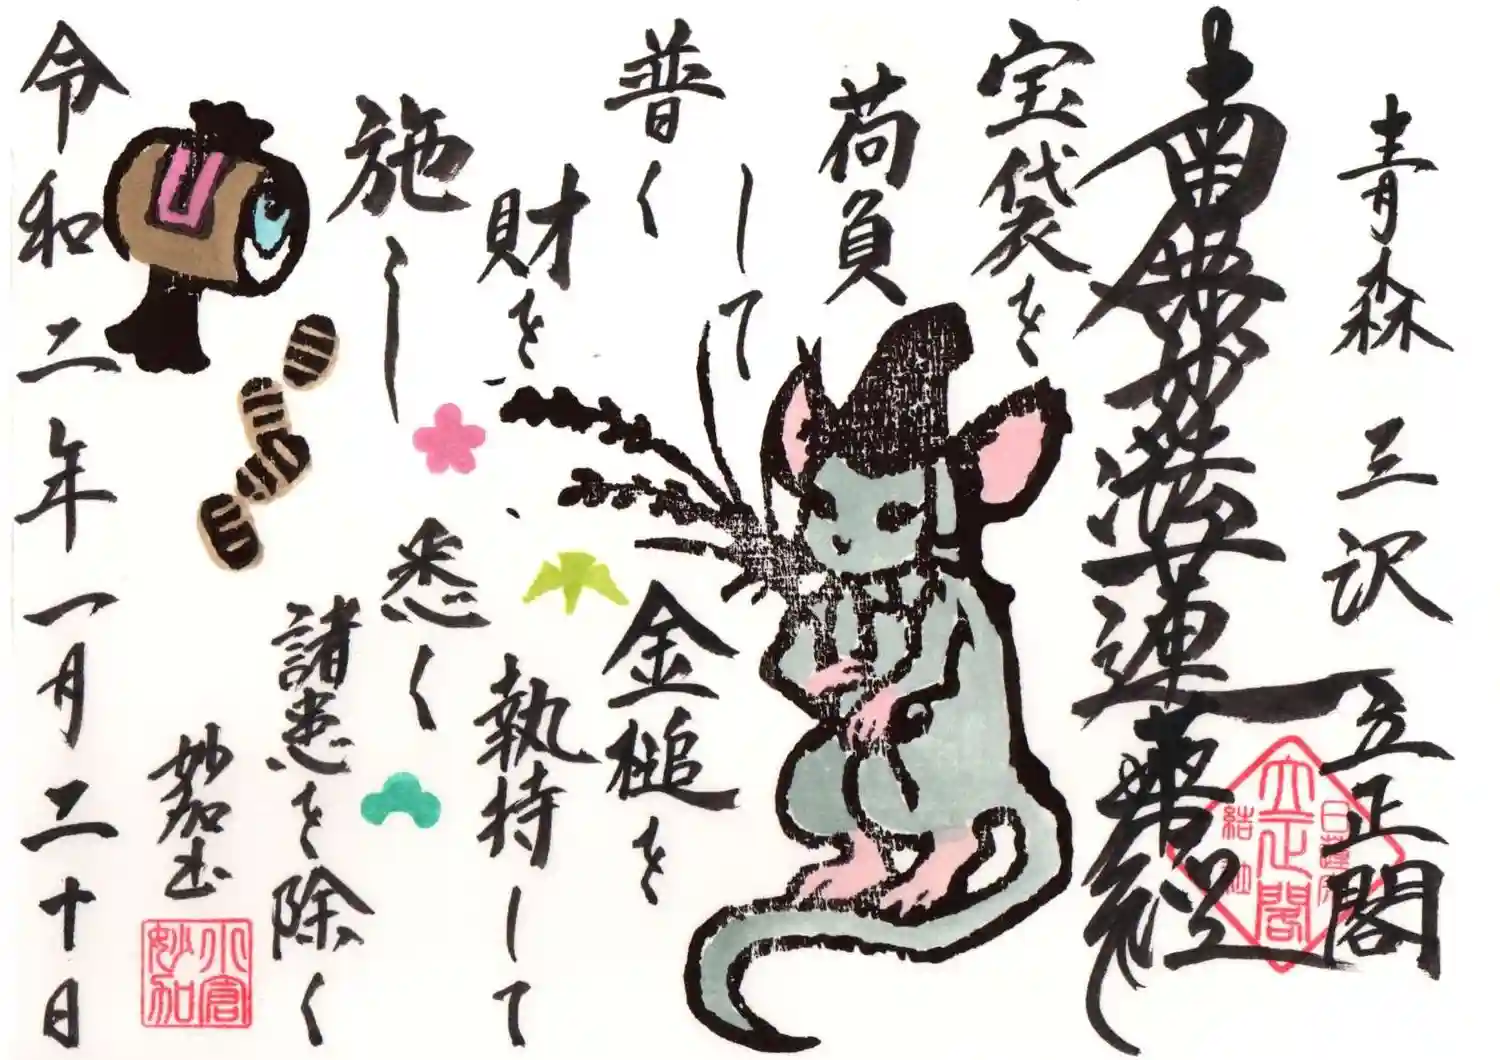 青森 三沢 立正閣
南無妙法蓮華経
宝袋を
荷負
して
普く
財を
施し
金槌を
執持して
悉く
諸悪を除く
妙加书
令和二年一月二十日
立正閣
結社
小倉
妙加